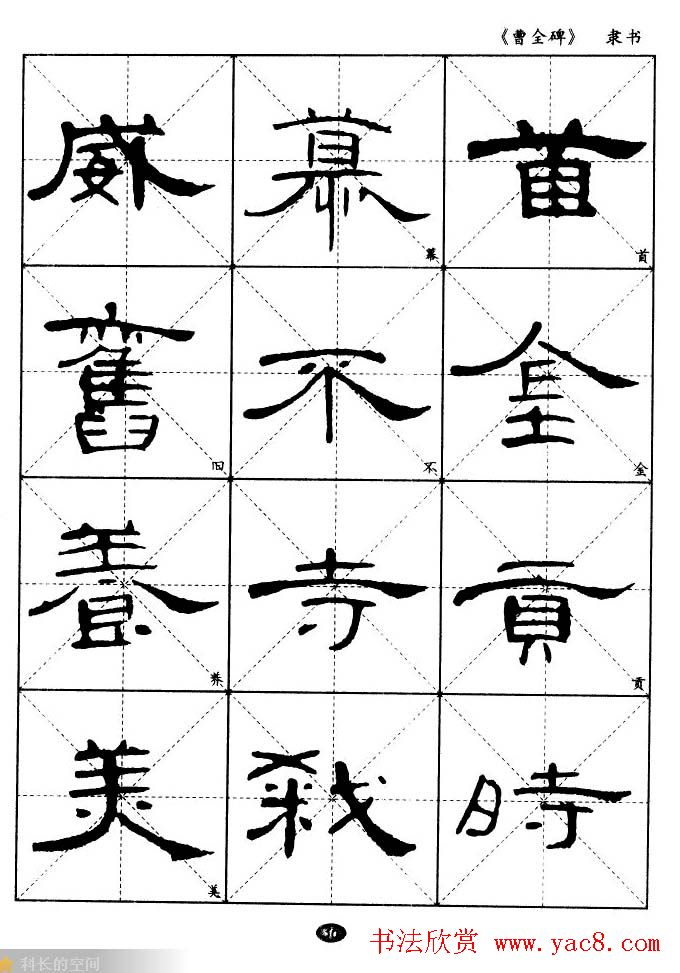 《曹全碑》 隶书
首 首
金 金
貢 贡
時
慕
不 不
寺
威
舊 旧
養 养
美 美
书法欣赏 www.yac8.com
科长的空间